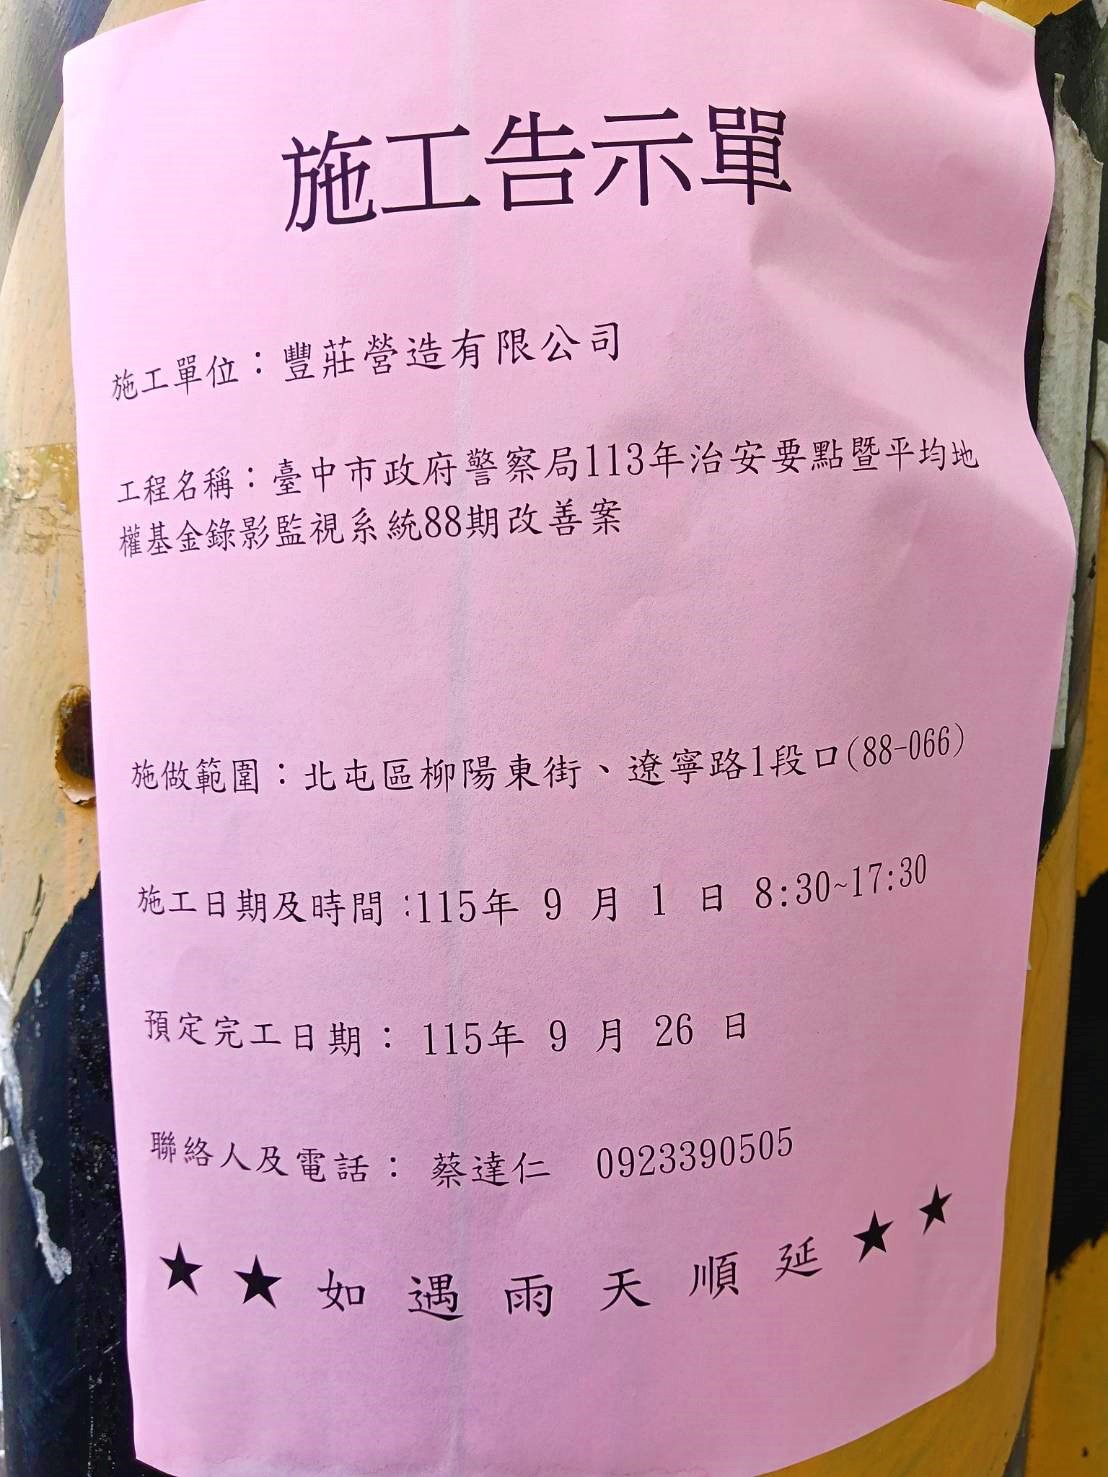 施工告示單
施工單位：豐莊營造有限公司
工程名稱：臺中市政府警察局113年治安要點暨平均地
權基金錄影監視系統88期改善案
施做範圍：北屯區柳陽東街、遼寧路1段口(88-066)
施工日期及時間:115年 9 月 1 日 8:30~17:30
預定完工日期：115年 9 月 26 日
聯絡人及電話：蔡達仁 0923390505
★ ★ 如 遇 雨 天 順 延 ★ ★